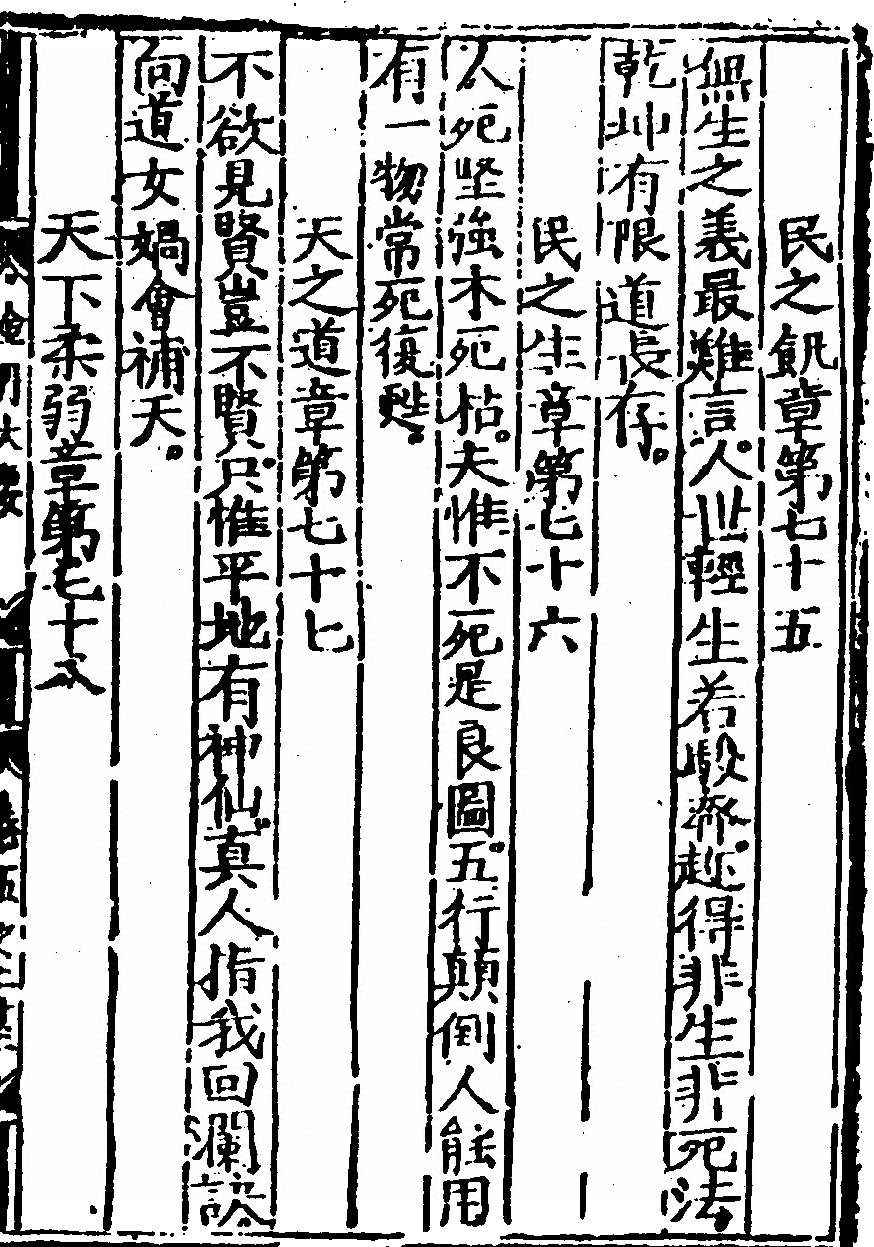 民之飢章第七十五
無生之義最難言人世輕生若駛㳅赴得非生非死法
乾坤有限道長存
民之生章第七十六
人死堅強木死枯夫惟不死是良圖五行顛倒人能用
有一物常死復甦
天之道章第七十七
不欲見賢豈不賢只惟平地有神仙真人指我回瀾訣
向道女媧會補天
天下柔弱章第七十八